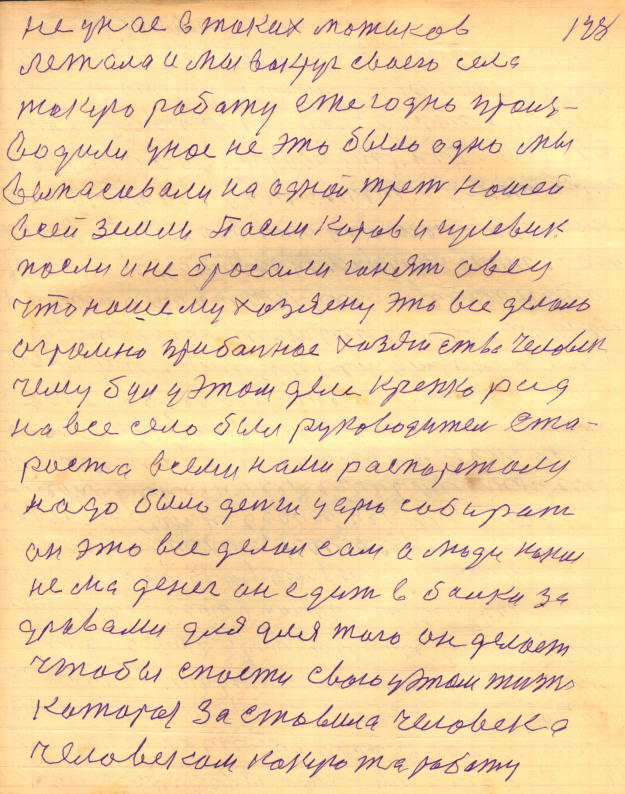 не у нас в таких мотиков 128
лежала и мы вокруг своего села
такую работу ежегодно произ-
водили у нас не это было одно мы
выпасивали на одной трет нашей
всей земли Пасли коров и гулевик
пасли и не бросали ганят овец
что нашему хозяену это все делало
огромно прибалное хозяйства человек
чему був у этом деле крепко рад
на все село был руководител ста-
роста всеми нами распорежали
надо было денги царю собират
он это все делал сам а люди
не ма денег он едит в балки за
дравами для для того он делает
чтобы спасти свою у этом жизнь
котороя заставила человека
человеком какую та работу